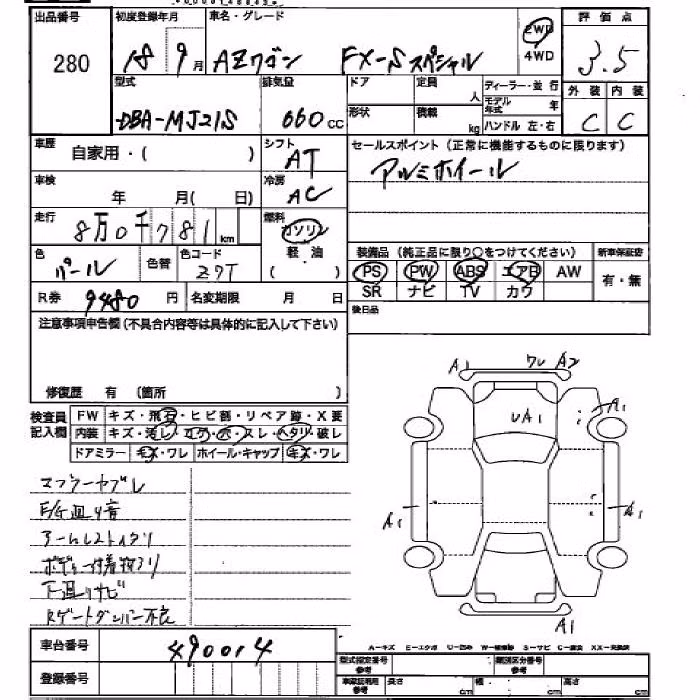 出品番号 初度登録年月 車名・グレード 評価点
280 18 9月 AZワゴン FX-Sスペシャル 2WD 4WD 3.5
型式 排気量 ドア 定員 人 ディーラー・並行 外装 内装
DBA-MJ21S 660cc 形状 積載 kg モデル年式 年 ハンドル 左・右 C C
車歴 自家用・( ) シフト AT セールスポイント (正常に機能するものに限ります)
車検 年 月( 日) 冷房 AC アルミホイール
走行 8万0千781km 燃料 ガソリン 軽油 ( )
色 パール 色替 色コード Z7T 装備品 (純正品に限り○をつけてください) 新車保証書
PS PW ABS エアB AW 有・無
R券 9480円 名変期限 月 日 SR ナビ TV カワ
注意事項申告欄(不具合内容等は具体的に記入して下さい) 後日品
修復歴 有 (箇所 )
検査員記入欄 FW キズ・飛石・ヒビ割・リペア跡・X要
内装 キズ・汚レ・コゲ・穴・スレ・ヘタリ・破レ
ドアミラー キズ・ワレ ホイール・キャップ キズ・ワレ
A1 ワレ A2
UA1 A1
A1 A1
A1
マフラーヤブレ
E/G廻り音
アームレストイタミ
ボディー付着物アリ
下廻りサビ
Rゲートダンパー不良
車台番号 490014
登録番号
A-キズ E-エクボ U-凹み W-補修跡 S-サビ C-腐食 XX-交換済
型式指定番号 参考 類別区分番号 参考
車検証明用 参考 長さ cm 幅 cm 高さ cm